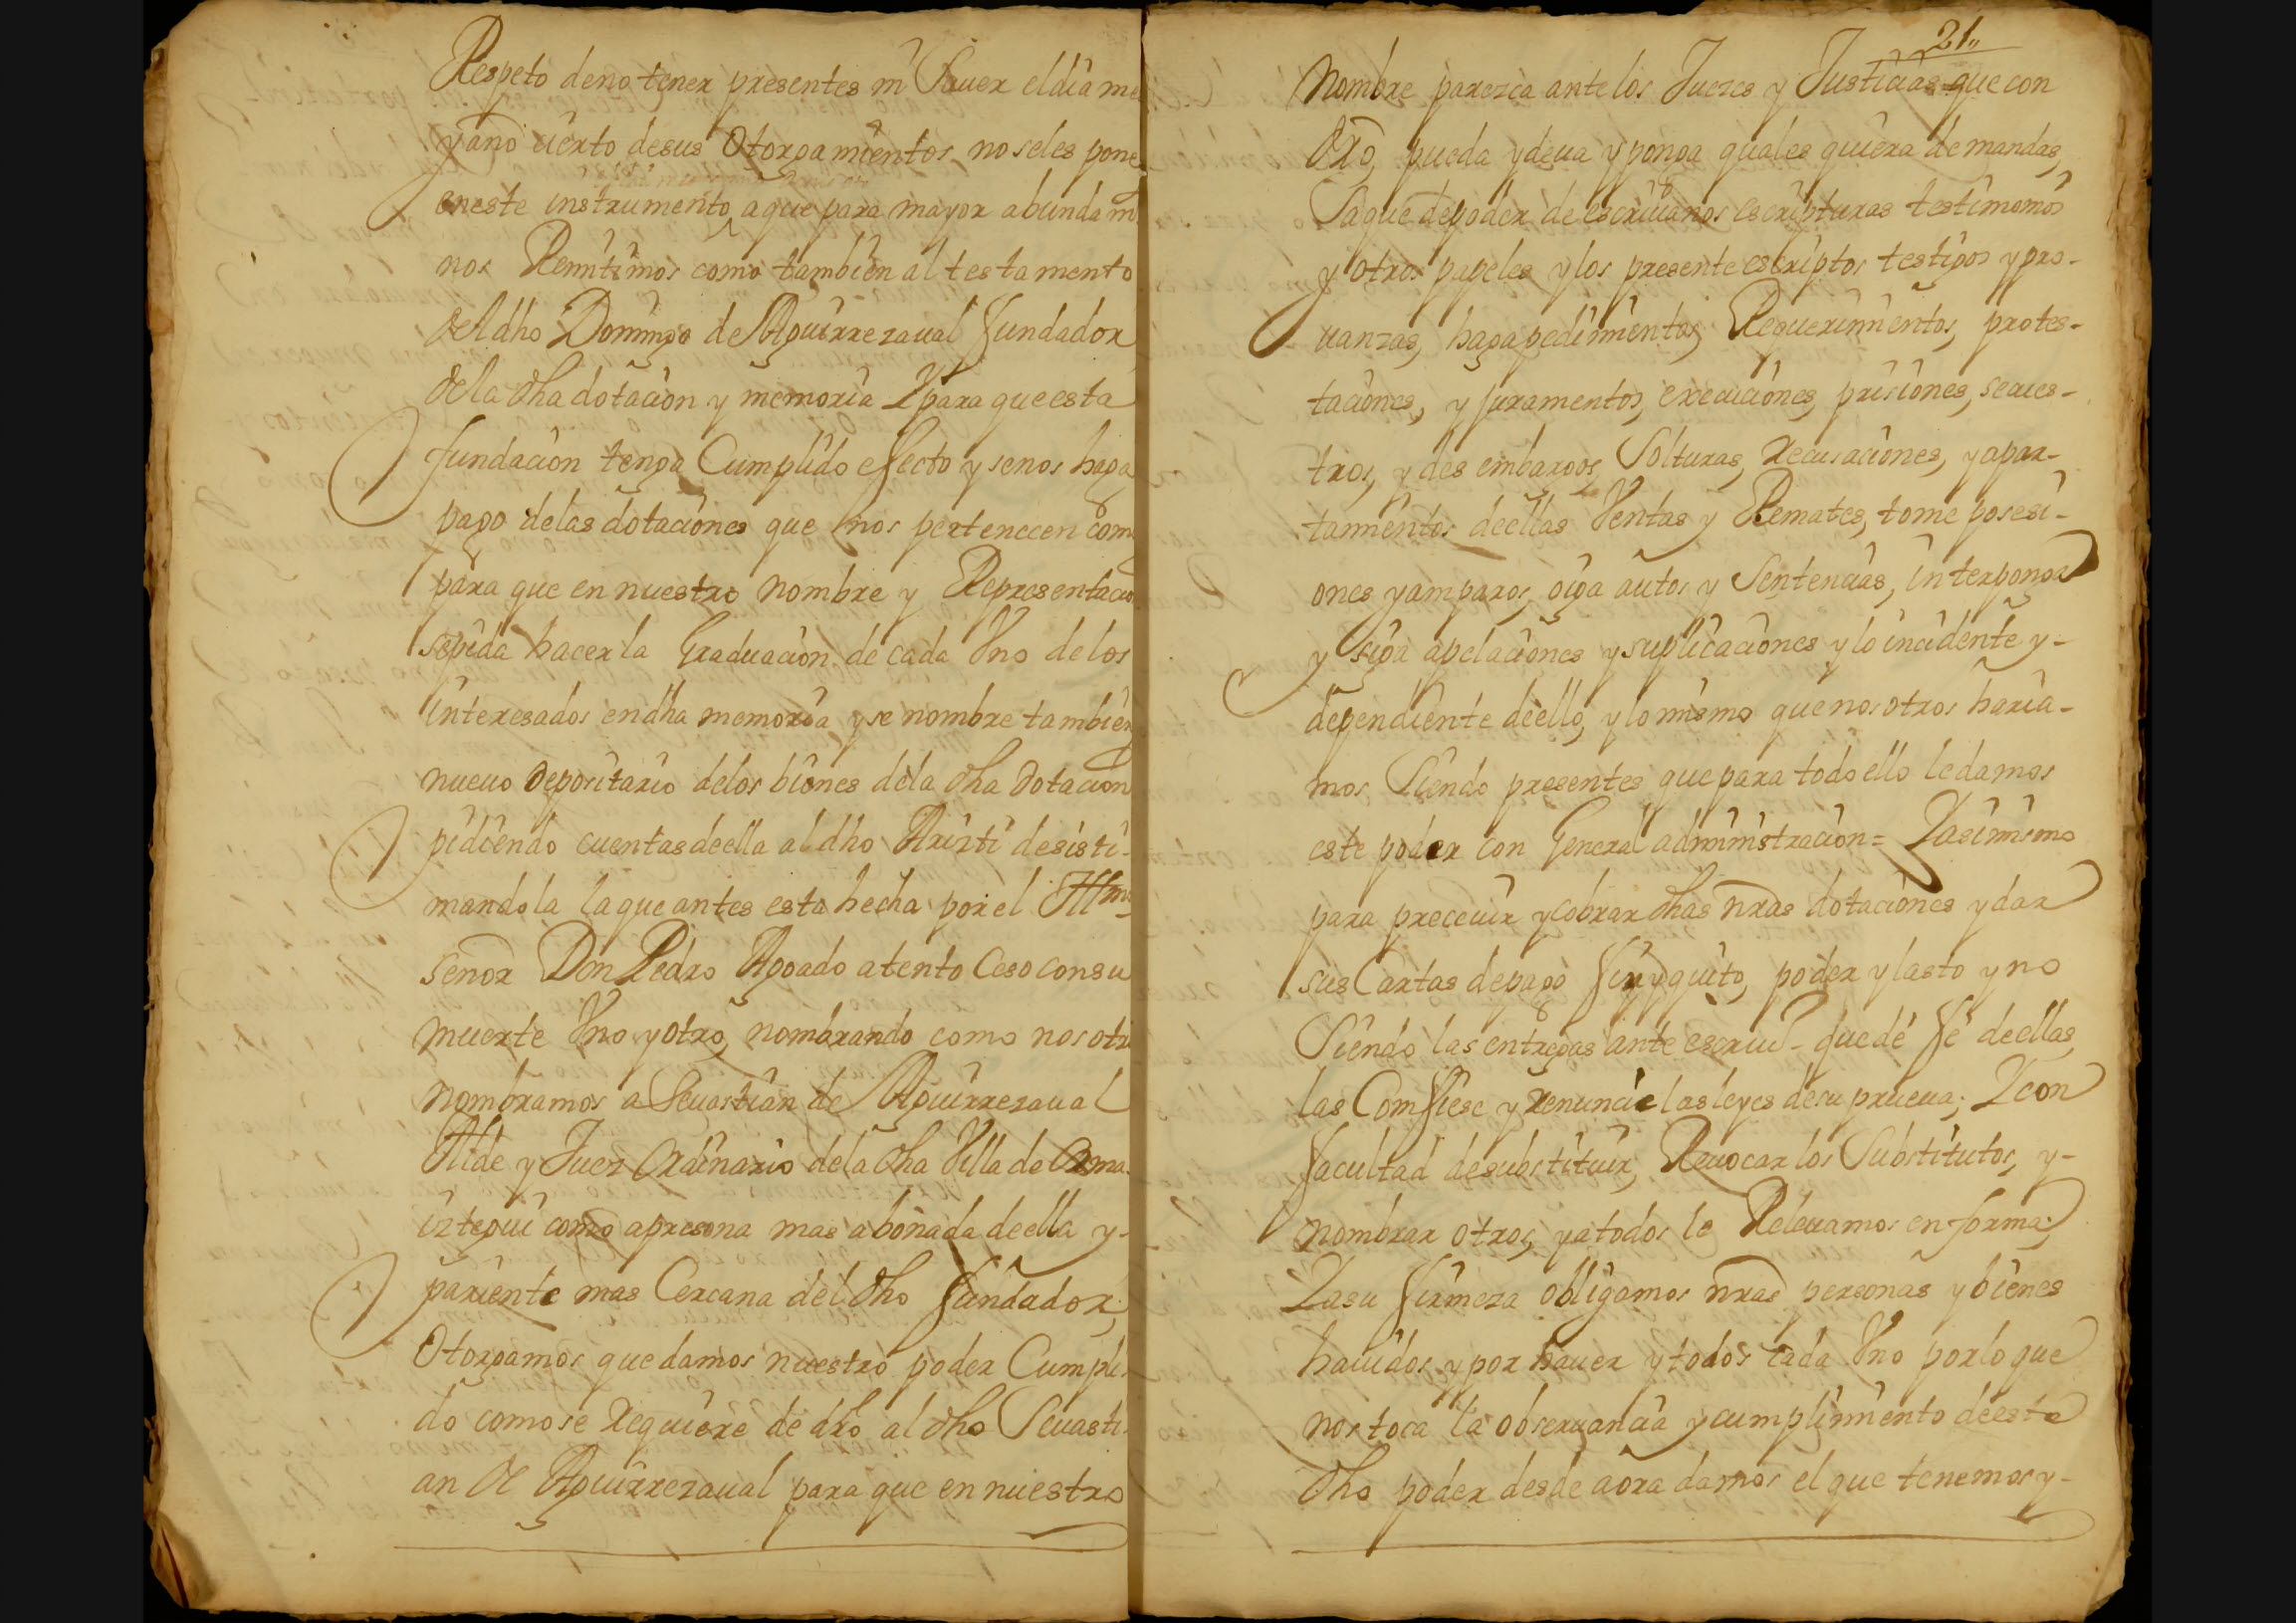 Respeto deno tener presentes ni Sauer eldia me
yano cierto desus Otorgamientos noseles pone
eneste instrumento aque para mayor abundam
nos Remitimos como tambien al testamento
deldho Domingo de Aguirrezaual fundador
dela dha dotacion y memoria Ypara que esta
fundacion tenga Cumplido efecto y senos haga
pago delas dotaciones que nos pertenecen com
para que en nuestro nombre y Representacio
sepida hacer la Graduacion de cada Vno delos
interesados endha memoria yse nombre tambien
nueuo Depositario delos biones dela dha Dotacion
pidiendo cuentas deella aldho Arizti desisti-
mandola laque antes esta hecha por el Illmo
señor Don Pedro Agoado atento Ceso consu
muerte Vno yotro, nombrando como nosotr
nombramos a Seuastian de Aguirrezaual
Allde y Juez Ordinario dela dha Villa de Orma
iztegui como apresona mas abonada deella y-
pariente mas Cercana del dho fundador,
Otorgamos que damos nuestro poder Cumpli-
do comose Requiere de dro al dho Seuasti-
an de Aguirrezaual para que en nuestro
21,,
Nombre parezca antelos Juezes y Justicias que con
Dro, pueda ydeua yponga quales quiera demandas,
Saque depoder de escriuanos escripturas testimonios
y otros papeles ylos presente escriptos testigos ypro-
uanzas, haga pedimientos, Requerimientos, protes-
taciones, y juramentos, execuciones, prisiones, secues-
tros, y des embargos, Solturas, Recusaciones, yapar-
tamientos deellas Ventas y Remates, tome posesi-
ones yamparos, oiga autos y Sentencias, interponga
y siga apelaciones ysuplicaciones ylo incidente y-
dependiente deello, ylo mismo que nosotros haria-
mos Siendo presentes que para todo ello ledamos
este poder con General administracion= Yasimismo
para preceuir ycobrar dhas nras dotaciones ydar
sus Cartas depago finyquito, poder ylasto yno
Siendo las entregas ante escriu- quedé fé deellas,
las Comfiese y renuncie las leyes desu prueua; Ycon
facultad desubstituir, Reuocar los Substitutos, y-
nombrar otros, yatodos le Releuamos en forma,
Yasu firmeza obligamos nras personas ybienes
hauidos y por hauer ytodos cada Vno porlo que
nos toca la obseruancia ycumplimiento deeste
dho poder desde aora damos el que tenemos y-